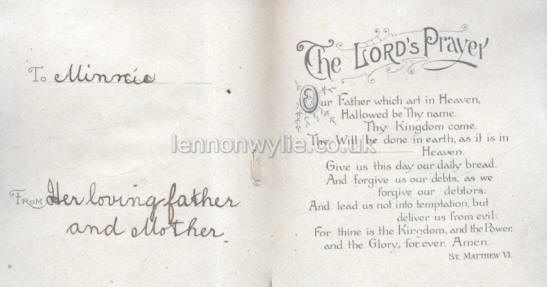 To Minnie
From Her loving father
and Mother.
The Lord's Prayer
Our Father which art in Heaven,
Hallowed be Thy name.
Thy Kingdom come.
Thy Will be done in earth, as it is in
Heaven.
Give us this day our daily bread.
And forgive us our debts, as we
forgive our debtors.
And lead us not into temptation, but
deliver us from evil:
For thine is the Kingdom, and the Power,
and the Glory, for ever. Amen.
St. Matthew VI.
lennonwylie.co.uk